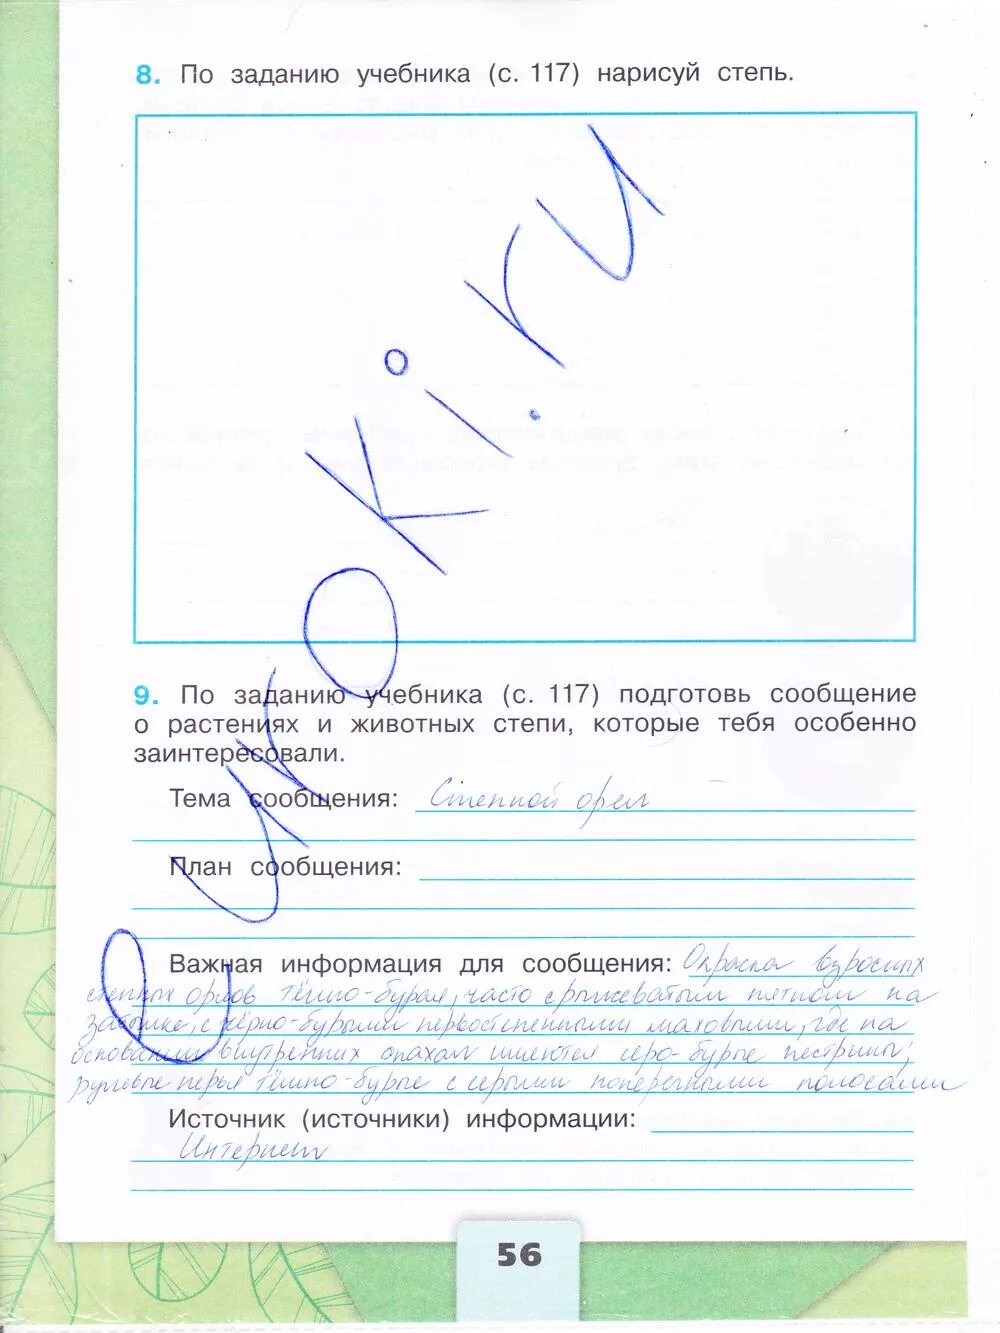 8. По заданию учебника (с. 117) нарисуй степь.
eurokoki.ru
9. По заданию учебника (с. 117) подготовь сообщение
о растениях и животных степи, которые тебя особенно
заинтересовали.
Тема сообщения: Степной орел
План сообщения:
Важная информация для сообщения: Окраска взрослых
степных орлов тёмно-бурая, часто с рыжеватым пятном на
затылке, с чёрно-бурыми первостепенными маховыми, где на
основании внутренних опахал имеются серо-бурые пестрины;
рулевые перья тёмно-бурые с серыми поперечными полосами
Источник (источники) информации:
Интернет
56